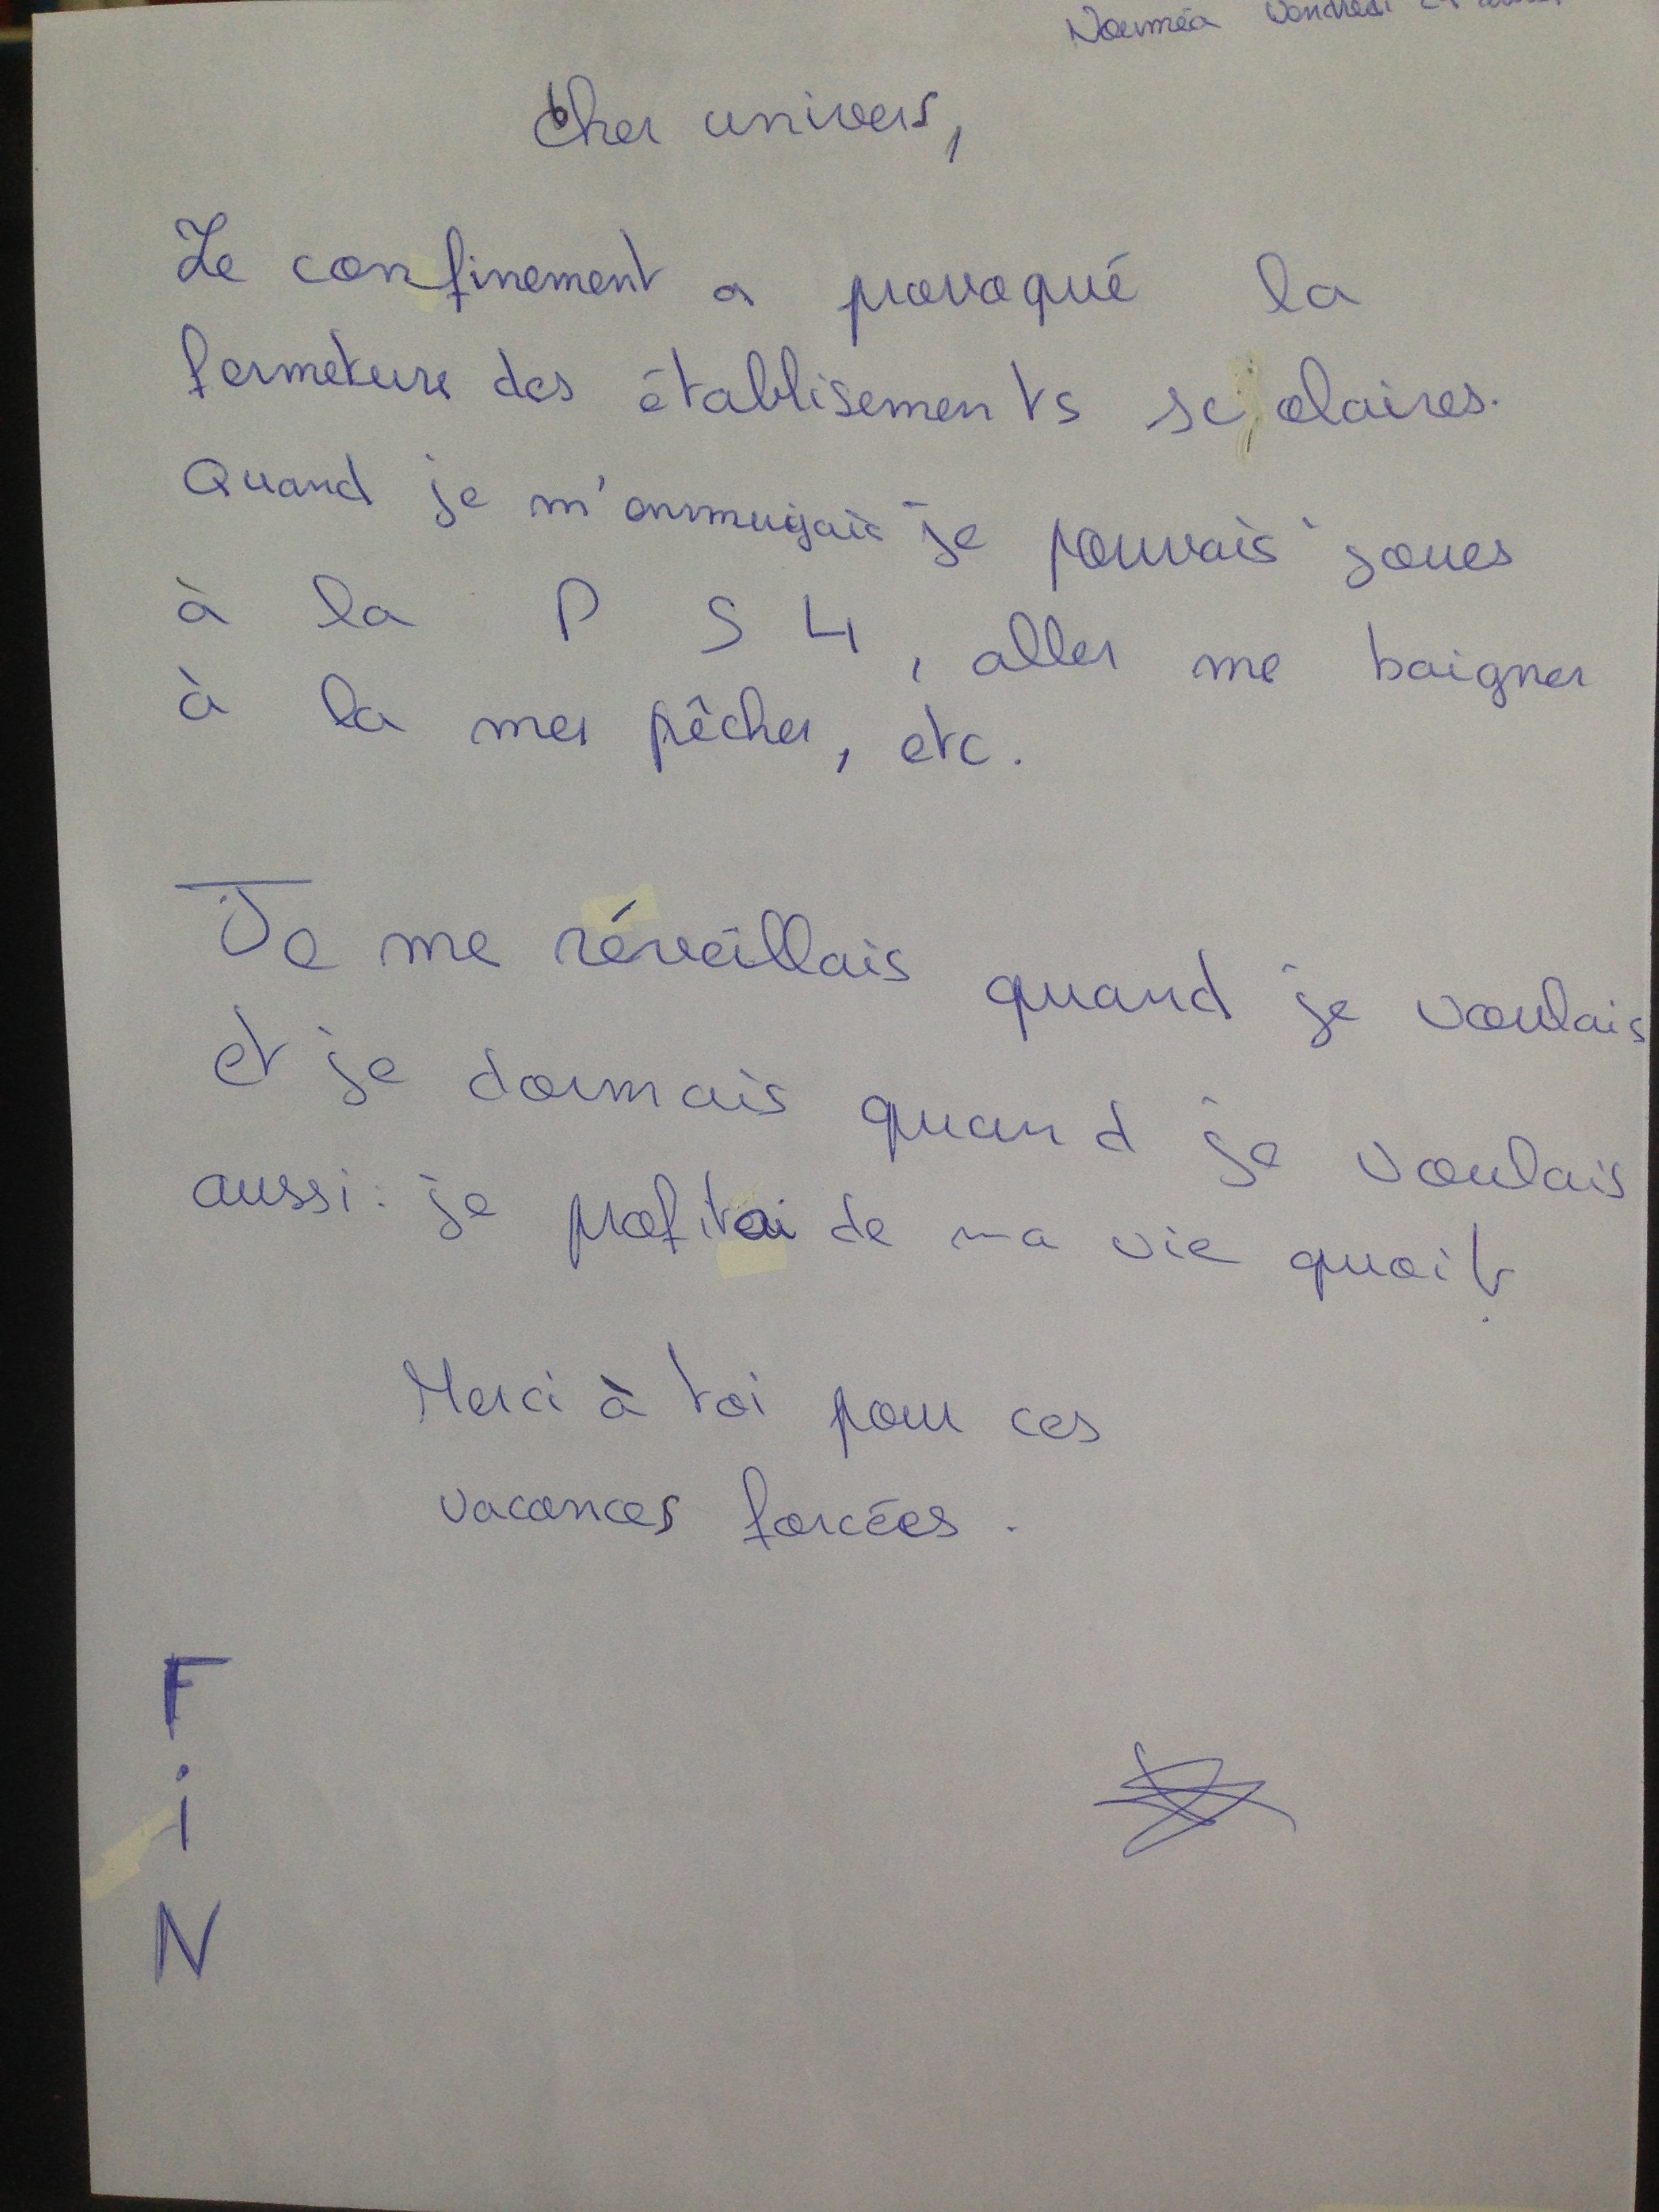 Nouméa Vendredi
Cher univers,
Le confinement a provoqué la
fermeture des établisements scolaires.
Quand je m'ennuyais je pouvais jouer
à la PS4, aller me baigner
à la mer pêcher, etc.
Je me réveillais quand je voulais
et je dormais quand je voulais
aussi : je profitai de ma vie quoi !
Merci à toi pour ces
vacances forcées.
F
i
N